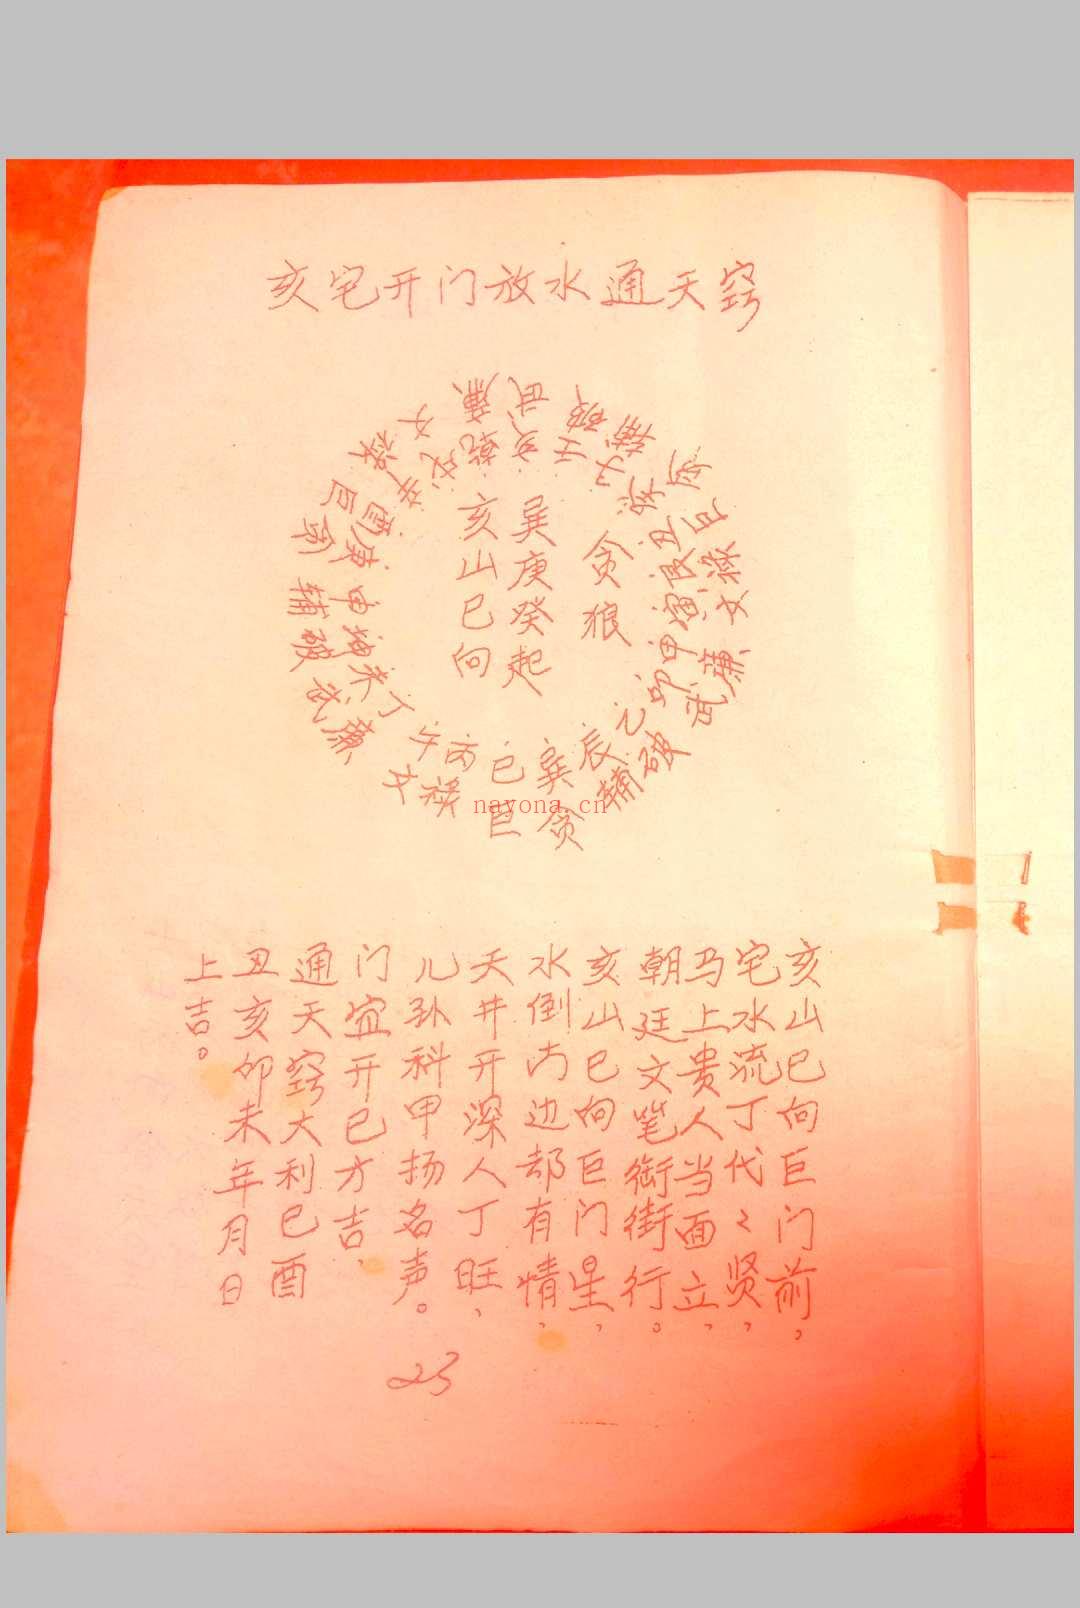 亥宅开门放水通天窍
廉武破辅贪巨禄文廉武破辅贪巨禄文廉武破辅贪巨禄文
乾亥壬子癸丑艮寅甲卯乙辰巽巳丙午丁未坤申庚酉辛戌
贪狼
巽庚癸起
亥山巳向
nayona.cn
亥山巳向巨门前，
宅水流丁代々贤，
马上贵人当面立，
朝廷文笔衙街行。
亥山巳向巨门星，
水倒内边却有情，
天井开深人丁旺，
儿孙科甲扬名声。
门宜开巳方吉、
通天窍大利巳酉
丑亥卯未年月日
上吉。
23